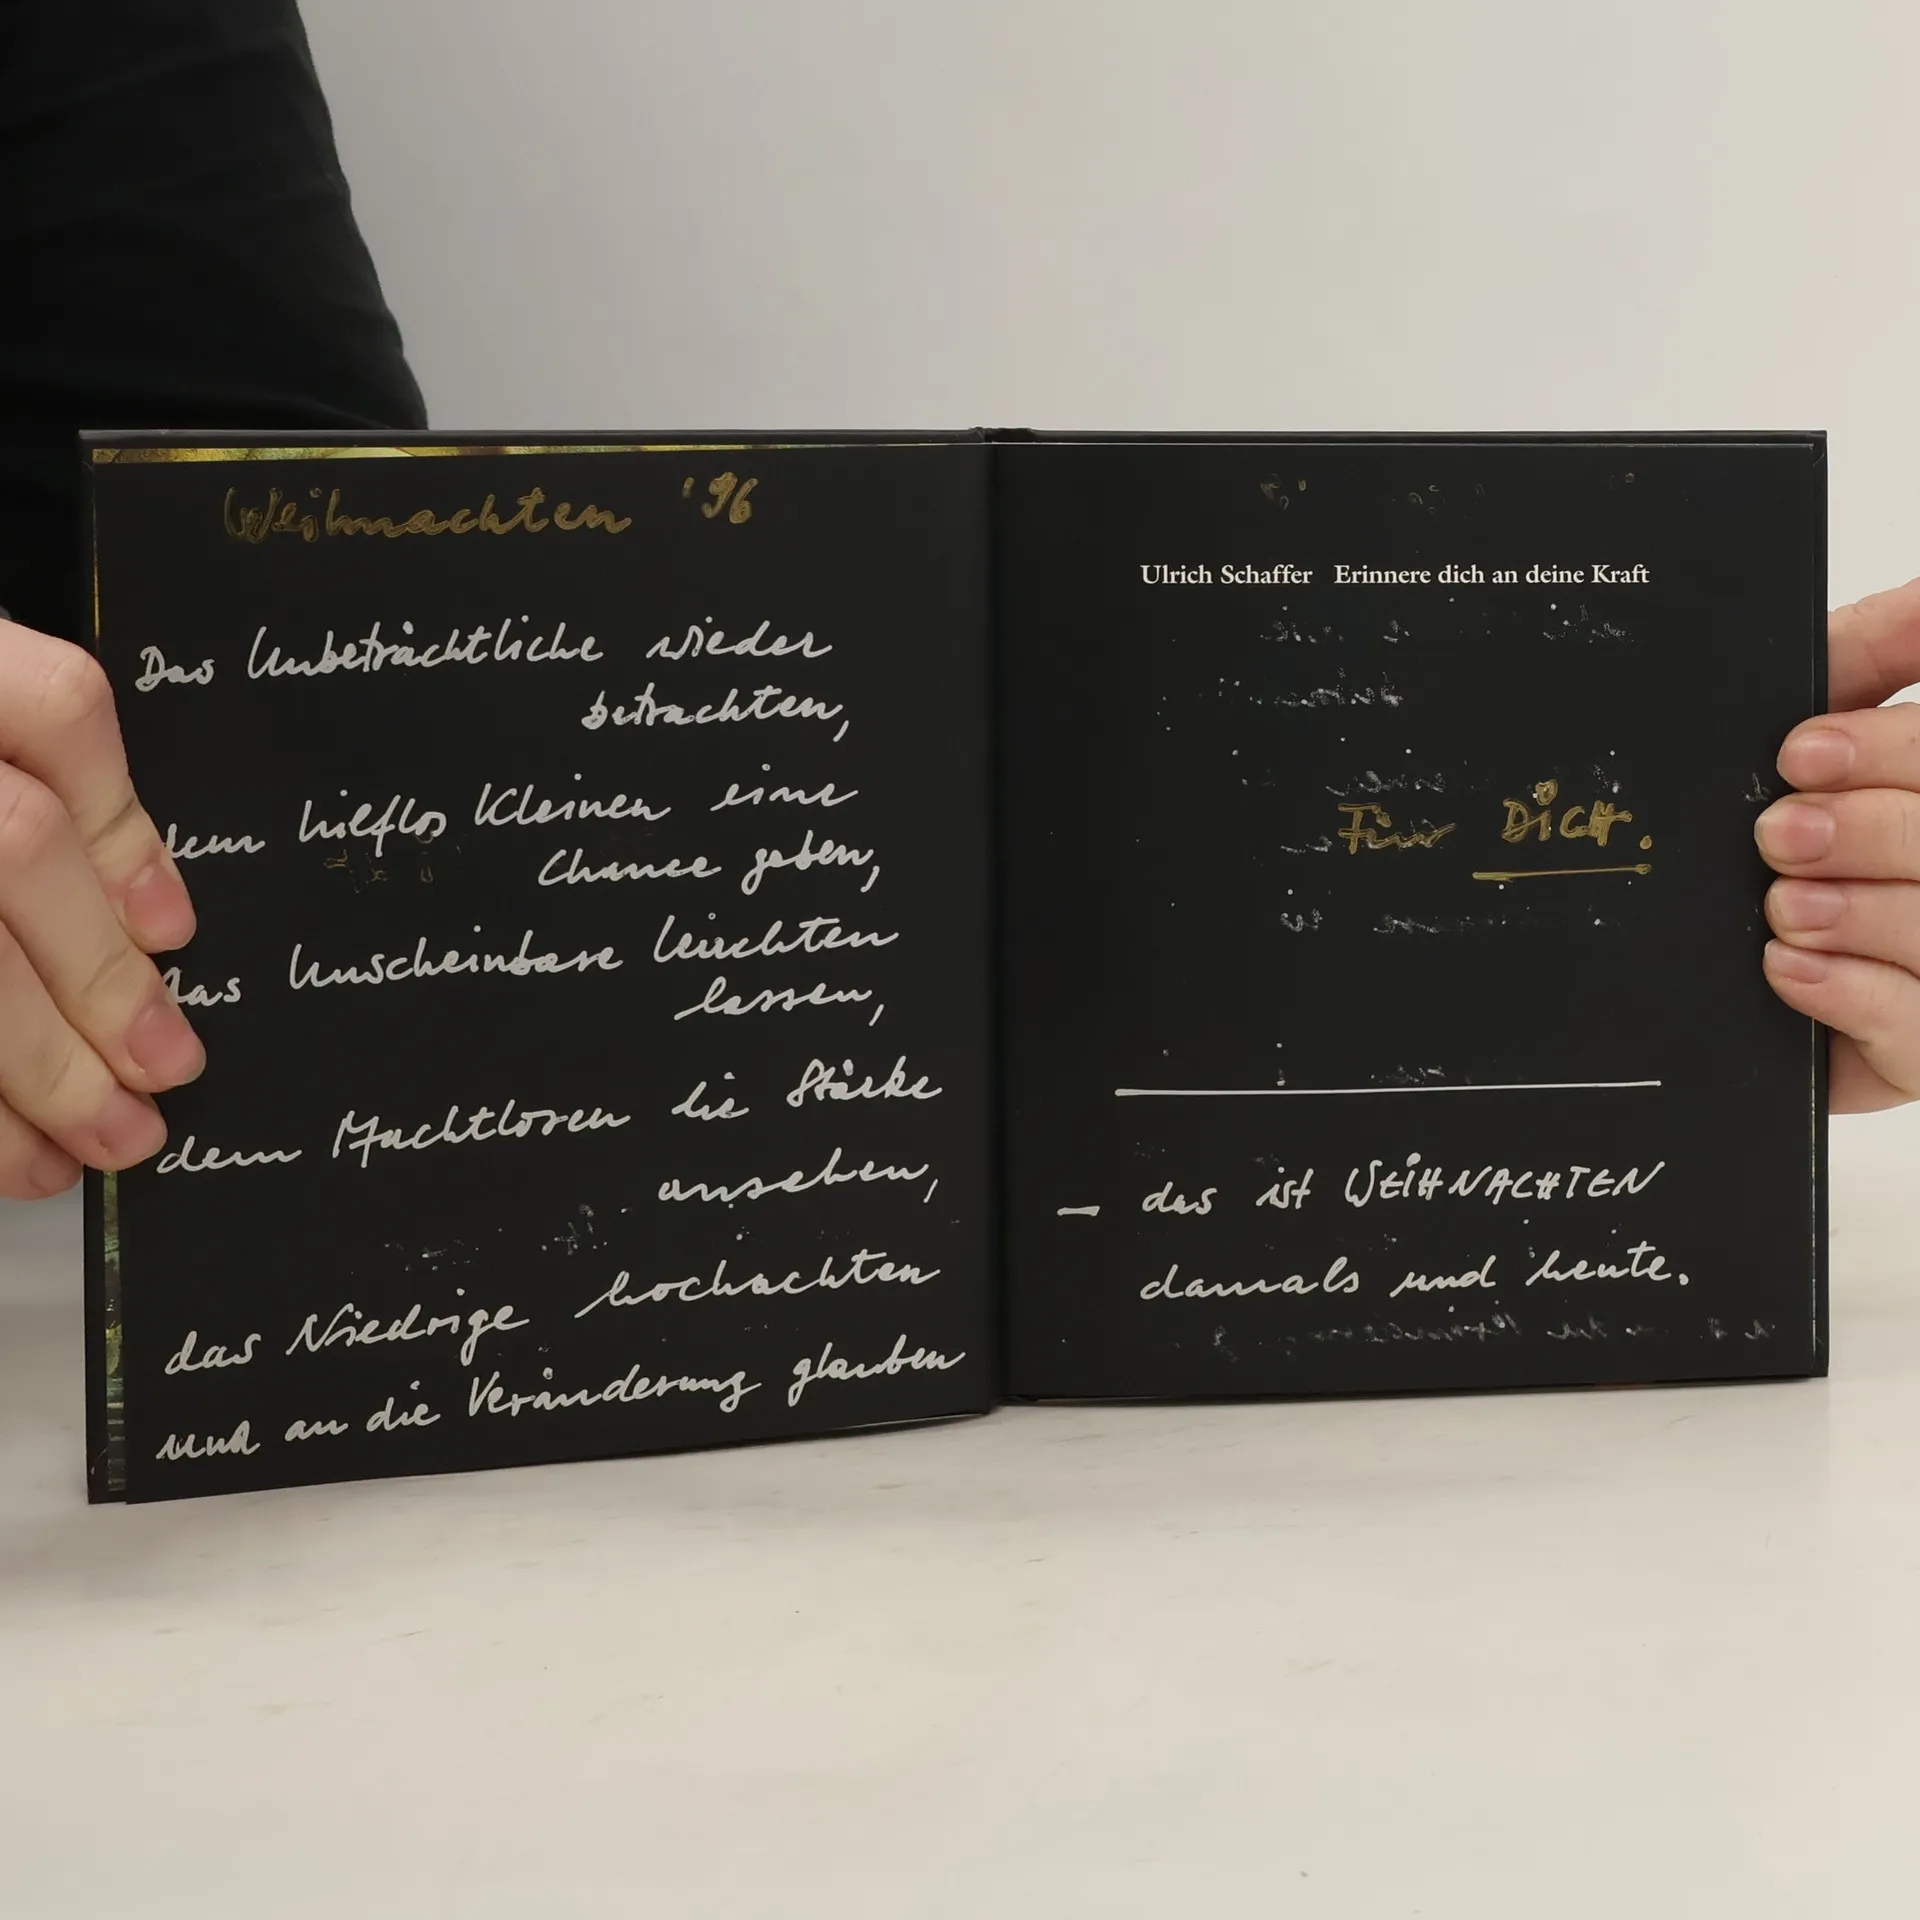 Weihnachten '96
Das Unbeträchtliche wieder
betrachten,
dem hilflos Kleinen eine
Chance geben,
das Unscheinbare leuchten
lassen,
dem Machtlosen die Stärke
ansehen,
das Niedrige hochachten
und an die Veränderung glauben
Ulrich Schaffer Erinnere dich an deine Kraft
Für DiCH.
– das ist WEiHNACHTEN
damals und heute.